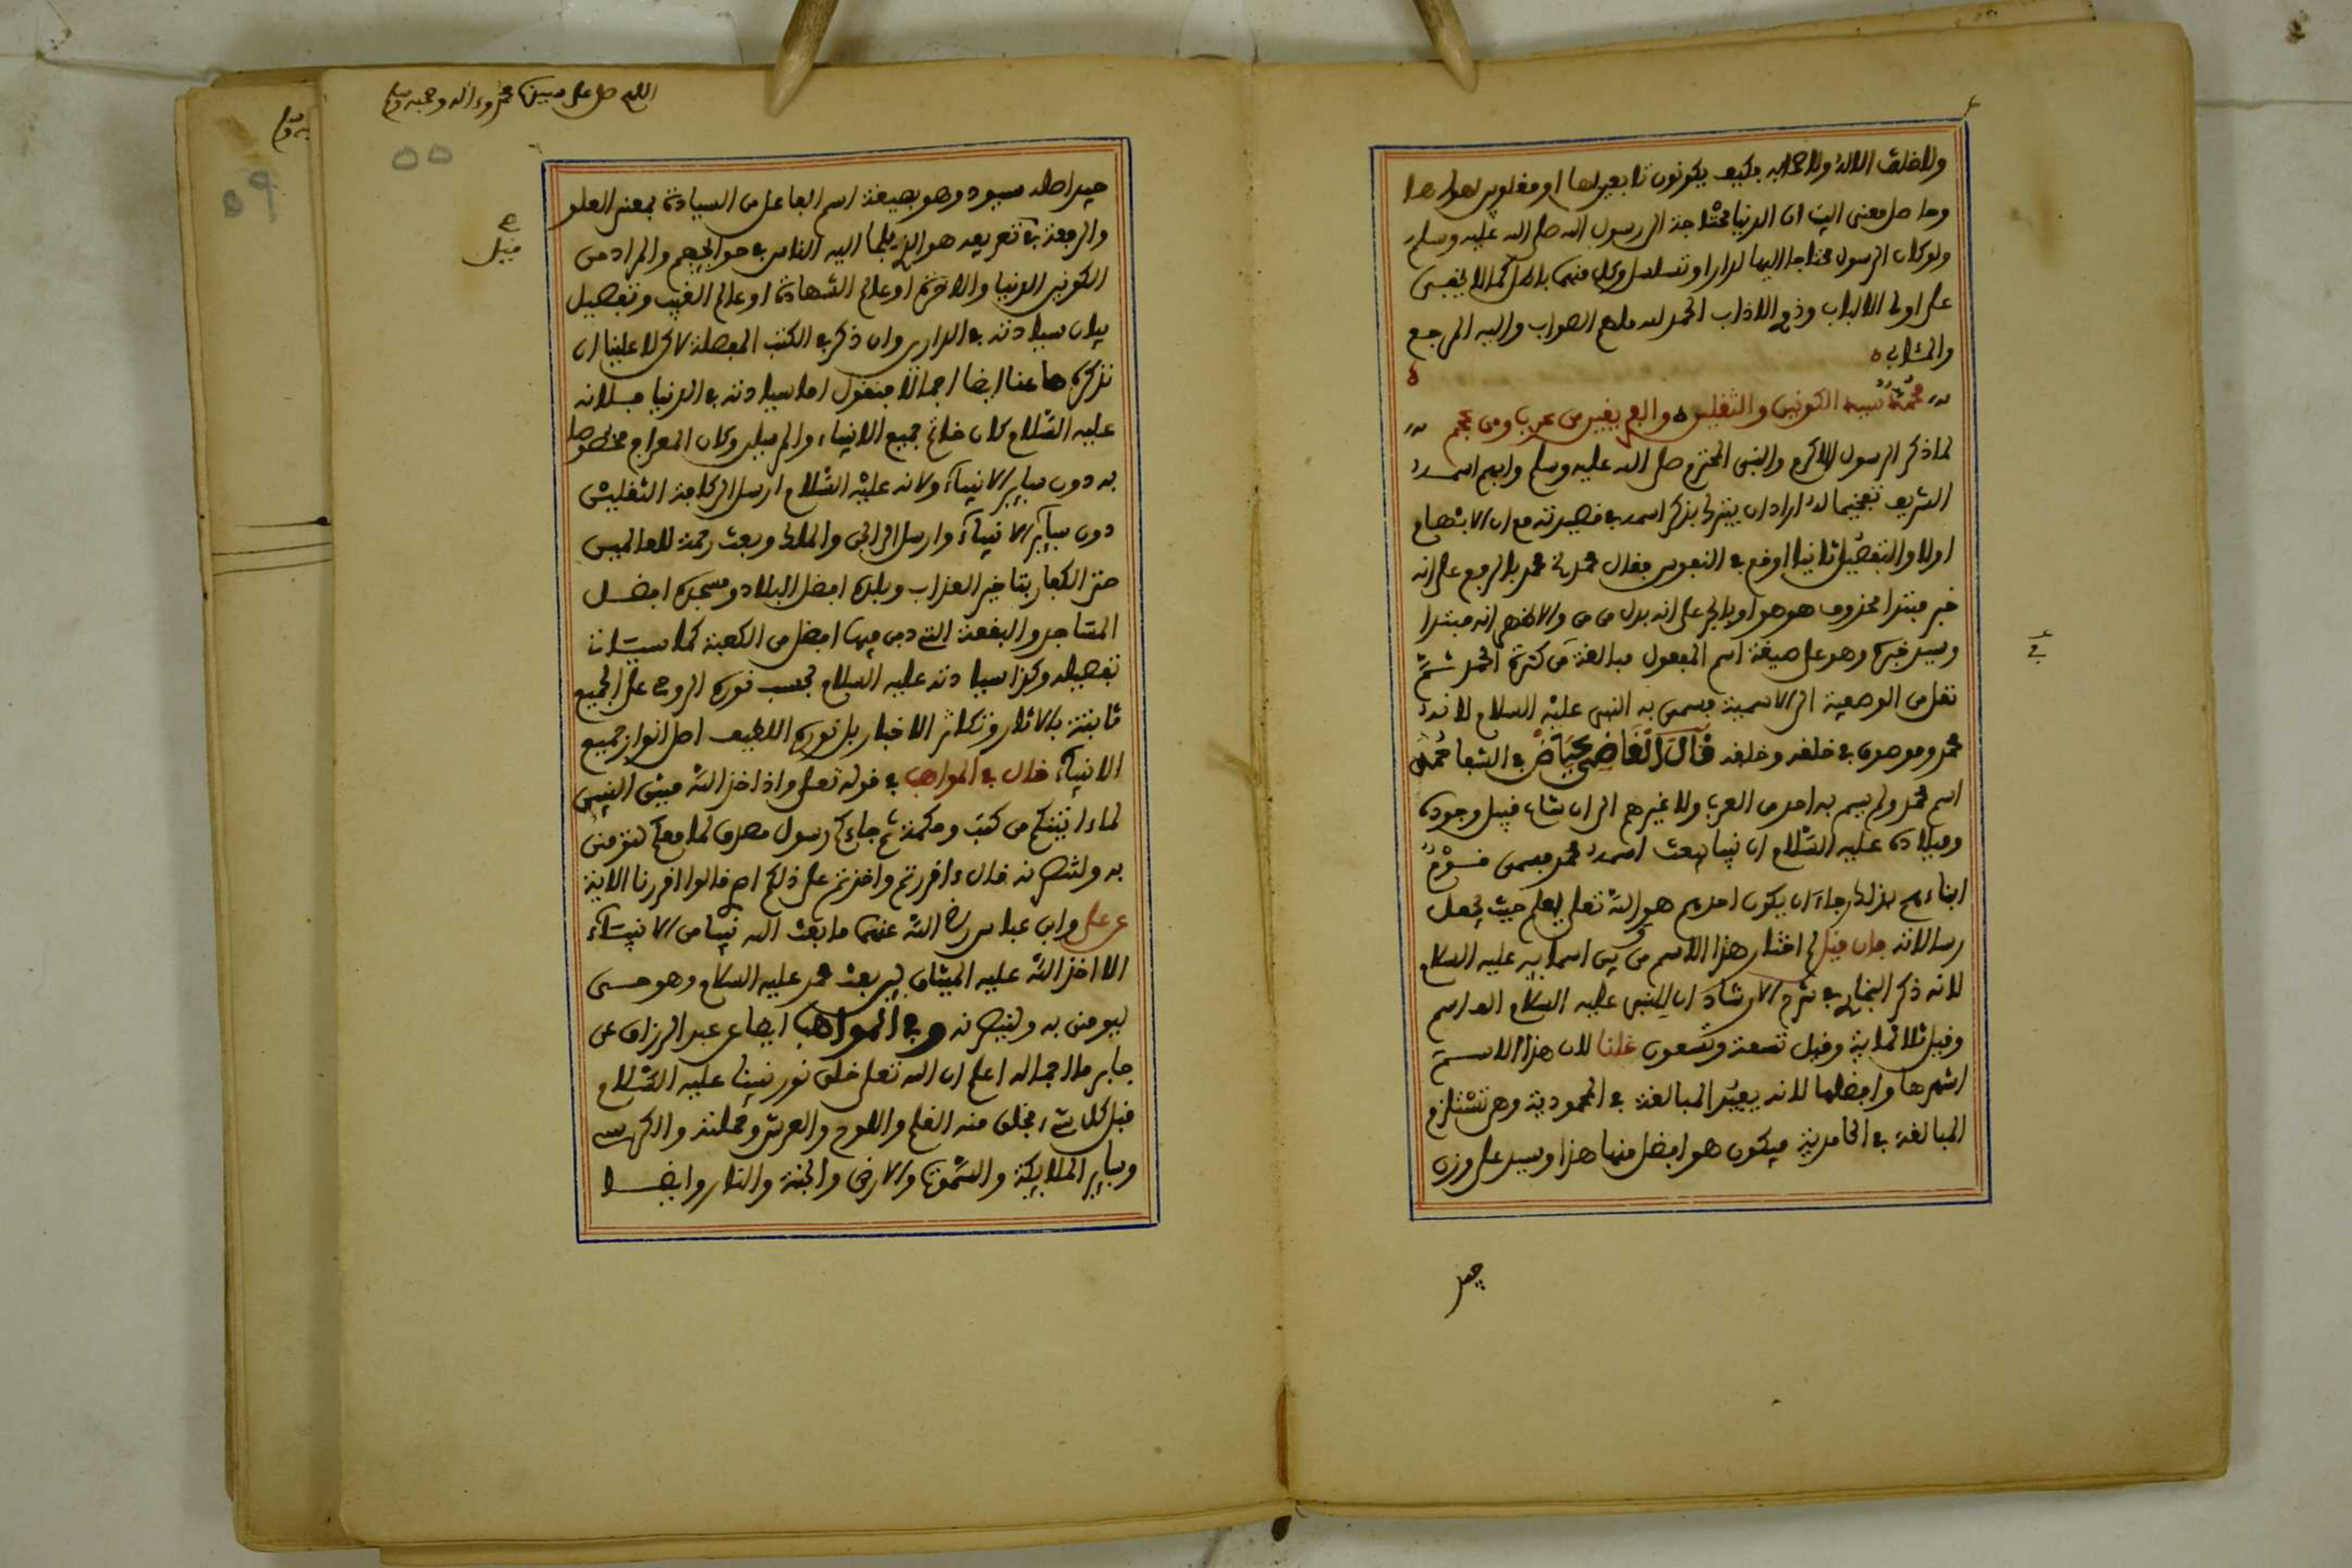 ولا خلق الاله ولا صحابه فكيف يكونون تابعين لها او مغلوبين لهواها
وحاصل معنى البيت ان الدنيا محتاجة الى رسول الله صلى الله عليه وسلم
ولو كان الرسول محتاجا اليها لدار او تسلسل وكل منهما باطل كما لا يخفى
على اولى الالباب وذوى الاداب الحمد لله ملهم الصواب واليه المرجع
والمئاب ه
محمد سيد الكونين والثقلين ه والفريقين من عرب ومن عجم
لما ذكر الرسول الاكرم والنبى المحترم صلى الله عليه وسلم وابهم اسمه
الشريف تفخيما له اراد ان يتبرك بذكر اسمه فى قصيدته مع ان الابهام
اولا والتفصيل ثانيا اوقع فى النفوس فقال محمد محمد بالرفع على انه
خبر مبتدا محذوف هو هو او بالجر على انه بدل من من والاظهر انه مبتدا
وسيد خبره وهو على صيغة اسم المفعول مبالغة من كثرة الحمد ثم
نقل من الوصفية الى الاسمية فسمى به النبى عليه السلام لانه
محمد وموصوف فى خلقه وخلقه قال القاضى عياض فى الشفا محمد
اسم محمد ولم يسم به احد من العرب ولا غيرهم الى ان شاع قبيل وجوده
وميلاده عليه السلام ان نبيا يبعث اسمه محمد فسمى قوم
ابناءهم بذلك رجاء ان يكون احدهم هو والله تعلى يعلم حيث يجعل
رسالاته فان قيل لم اختار هذا الاسم من بين اسمائه عليه السلام
لانه ذكر البخارى فى شرح الارشاد ان للنبى عليه السلام الف اسم
وقيل ثلاثماية وقيل تسعة وتسعون قلنا لان هذا الاسم
اشهرها وافضلها لانه يفيد المبالغة فى المحمودية وهى تستلزم
المبالغة فى الحامدية فيكون هو افضل منها هذا وسيد على وزن
فيعل
اللهم صل على سيدنا محمد وءاله وصحبه وسلم
٥٥
فيعل اصله سيود وهو بصيغة اسم الفاعل من السيادة بمعنى العلو
والرفعة فى تعريفه هو الذى يلجا اليه الناس فى حوائجهم والمراد من
الكونين الدنيا والاخرة او عالم الشهادة او عالم الغيب وتفصيل
بيان سيادته فى الدارين وان ذكر فى الكتب المفصلة لاكن لا علينا ان
نذكره هاهنا ايضا اجمالا فنقول اما سيادته فى الدنيا فلانه
عليه السلام كان خاتم جميع الانبياء والمرسلين وكان المعراج مخصوصا
به دون سائر الانبياء ولانه عليه السلام ارسل الى كافة الثقلين
دون سائر الانبياء وارسل الى الجن والملك وبعث رحمة للعالمين
حتى الكفار بتاخير العذاب وبلده افضل البلاد ومسجده افضل
المساجد والبقعة التى دفن فيها افضل من الكعبة كما سيئات
تفصيله وكذا سيادته عليه السلام بحسب نوره الروحى على الجميع
ثابتة بالاثار وتكاثر الاخبار بل نوره اللطيف اصل انوار جميع
الانبياء قال فى المواهب فى قوله تعلى واذ اخذ الله ميثق النبيئن
لما ءاتيتكم من كتب وحكمة ثم جاءكم رسول مصدق لما معكم لتومنن
به ولتنصرنه قال ءاقررتم واخذتم على ذلكم اصرى قالوا اقررنا الاية
عن على وابن عباس رضى الله عنهما ما بعث الله نبيا من الانبياء
الا اخذ الله عليه الميثاق لئن بعث محمد عليه السلام وهو حى
ليومنن به ولينصرنه وفى المواهب ايضا عن عبد الرزاق عن
جابر ما الجماله اعلم ان الله تعلى خلق نور نبينا عليه السلام
قبل كل شىء فخلق منه القلم واللوح والعرش وحملته والكرسى
وسائر الملائكة والسموت والارض والجنة والنار وايضا